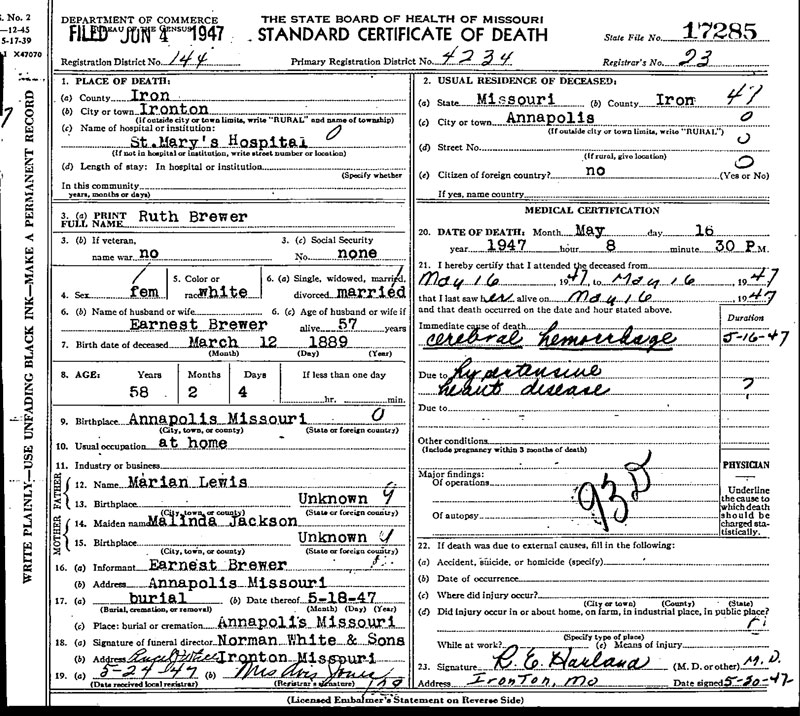 S. No. 2
-12-45
5-17-39
X47070
WRITE PLAINLY—USE UNFADING BLACK INK—MAKE A PERMANENT RECORD
DEPARTMENT OF COMMERCE
BUREAU OF THE CENSUS
FILED JUN 4 1947
THE STATE BOARD OF HEALTH OF MISSOURI
STANDARD CERTIFICATE OF DEATH
State File No. 17285
Registration District No. 144
Primary Registration District No. 4234
Registrar's No. 23
1. PLACE OF DEATH:
(a) County Iron
(b) City or town Ironton
(If outside city or town limits, write "RURAL" and name of township)
(c) Name of hospital or institution: 0
St.Mary's Hospital
(If not in hospital or institution, write street number or location)
(d) Length of stay: In hospital or institution
(Specify whether
In this community
years, months or days)
3. (a) PRINT FULL NAME Ruth Brewer
3. (b) If veteran, name war no
3. (c) Social Security No. none
4. Sex fem
5. Color or race white
6. (a) Single, widowed, married, divorced married
6. (b) Name of husband or wife Earnest Brewer
6. (c) Age of husband or wife if alive 57 years
7. Birth date of deceased March 12 1889
(Month) (Day) (Year)
8. AGE: Years Months Days If less than one day
58 2 4 hr. min.
9. Birthplace Annapolis Missouri 0
(City, town, or county) (State or foreign country)
10. Usual occupation at home
11. Industry or business
FATHER
12. Name Marian Lewis
13. Birthplace Unknown 9
(City, town, or county) (State or foreign country)
MOTHER
14. Maiden name Malinda Jackson
15. Birthplace Unknown 9
(City, town, or county) (State or foreign country)
16. (a) Informant Earnest Brewer
(b) Address Annapolis Missouri
17. (a) burial (b) Date thereof 5-18-47
(Burial, cremation, or removal) (Month) (Day) (Year)
(c) Place: burial or cremation Annapolis Missouri
18. (a) Signature of funeral director Norman White & Sons
(b) Address Ironton Missouri
19. (a) 5-24-47 (b) Mrs Avis Jones
(Date received local registrar) (Registrar's signature)
2. USUAL RESIDENCE OF DECEASED:
(a) State Missouri (b) County Iron 47
(c) City or town Annapolis 0
(If outside city or town limits, write "RURAL")
(d) Street No. 0
(If rural, give location) 0
(e) Citizen of foreign country? no (Yes or No)
If yes, name country
MEDICAL CERTIFICATION
20. DATE OF DEATH: Month May day 16
year 1947 hour 8 minute 30 P.M.
21. I hereby certify that I attended the deceased from
May 16 1947, to May 16 1947
that I last saw her alive on May 16 1947
and that death occurred on the date and hour stated above.
Duration
Immediate cause of death
cerebral hemorrhage 5-16-47
Due to hypertensive
heart disease ?
Due to
Other conditions
(Include pregnancy within 3 months of death)
Major findings:
Of operations
93D
Of autopsy
PHYSICIAN
Underline the cause to which death should be charged statistically.
22. If death was due to external causes, fill in the following:
(a) Accident, suicide, or homicide (specify)
(b) Date of occurrence
(c) Where did injury occur?
(City or town) (County) (State)
(d) Did injury occur in or about home, on farm, in industrial place, in public place?
(Specify type of place)
While at work? (e) Means of injury
23. Signature R. E. Harland (M. D. or other) M.D.
Address Ironton, Mo Date signed 5-20-47
(Licensed Embalmer's Statement on Reverse Side)